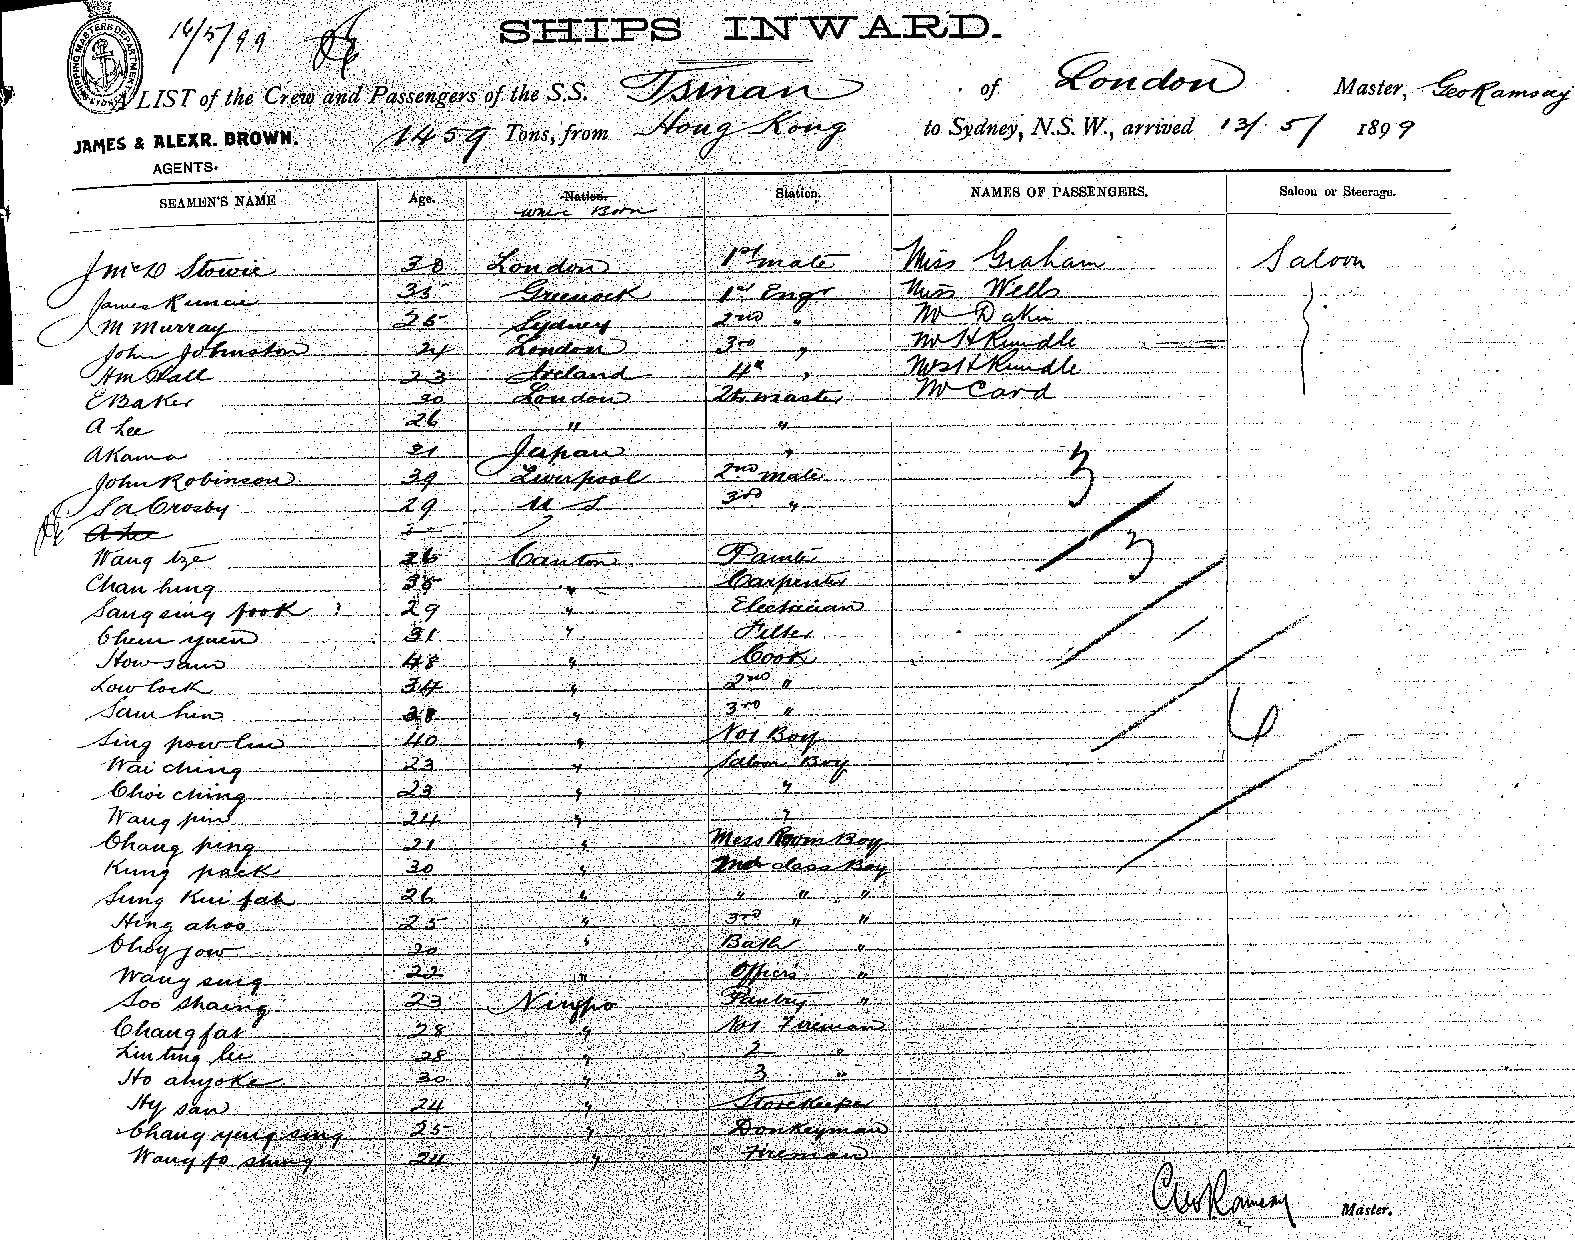 16/5/99
SHIPS INWARD.
A LIST of the Crew and Passengers of the S.S. Tsinan of London Master, Geo Ramsay
JAMES & ALEXR. BROWN. 1459 Tons, from Hong Kong to Sydney, N.S.W., arrived 13/5/ 1899
AGENTS.
SEAMEN'S NAME Age. Nation. Station. NAMES OF PASSENGERS. Saloon or Steerage.
where Born
J McD Stowie 38 London 1st mate Miss Graham Saloon
James Runcie 35 Greenock 1st Engr Miss Wells
M Murray 25 Sydney 2nd " Mr Dakin
John Johnston 24 London 3rd " Mr H Rundle
Hm Hall 23 Ireland 4th " Mrs H Rundle
E Baker 30 London 2tr master Mr Card
A Lee 26 " "
Akama 31 Japan "
John Robinson 39 Liverpool 2nd mate 3
Sa Crosby 29 U S 3rd "
A Lee
Wang tze 26 Canton Painter 3
Chan hing 38 " Carpenter
Sang sing fook 29 " Electrician
Chem yuen 31 " Fitter
How sam 48 " Cook
Low lock 34 " 2nd "
Sam hin 28 " 3rd " 6
Sing pow lin 40 " No1 Boy
Wai ching 23 " Saloon Boy
Choi ching 23 " "
Wang pin 24 " "
Chang ping 21 " Mess Room Boy
Kung pack 30 " 2nd class Boy
Sung Kui fah 26 " " " "
Hing ahoo 25 " 3rd " "
Choy jow 20 " Bath "
Wang sing 22 " Officers "
Soo shaing 23 Ningpo Pantry "
Chang fat 28 " No1 Fireman
Lin ting lee 28 " 2 "
Ho ahyoke 30 " 3 "
Hy san 24 " Storekeeper
Chang yeng sing 25 " Donkeyman
Wang fo shing 24 " Fireman
Geo Ramsay Master.